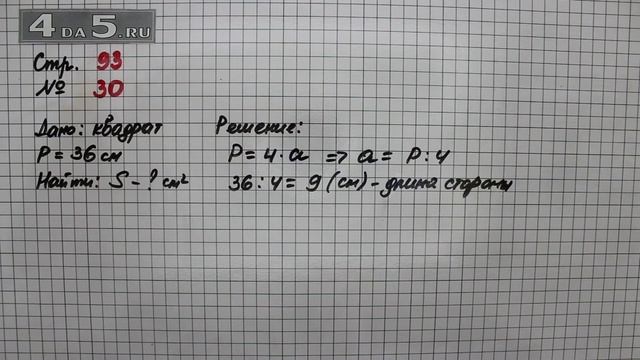 4 DA 5.RU
Стр. 93
№ 30
Дано: квадрат
P = 36 см
Найти: S - ? см²
Решение:
P = 4 · a => a = P : 4
36 : 4 = 9 (см) - длина стороны